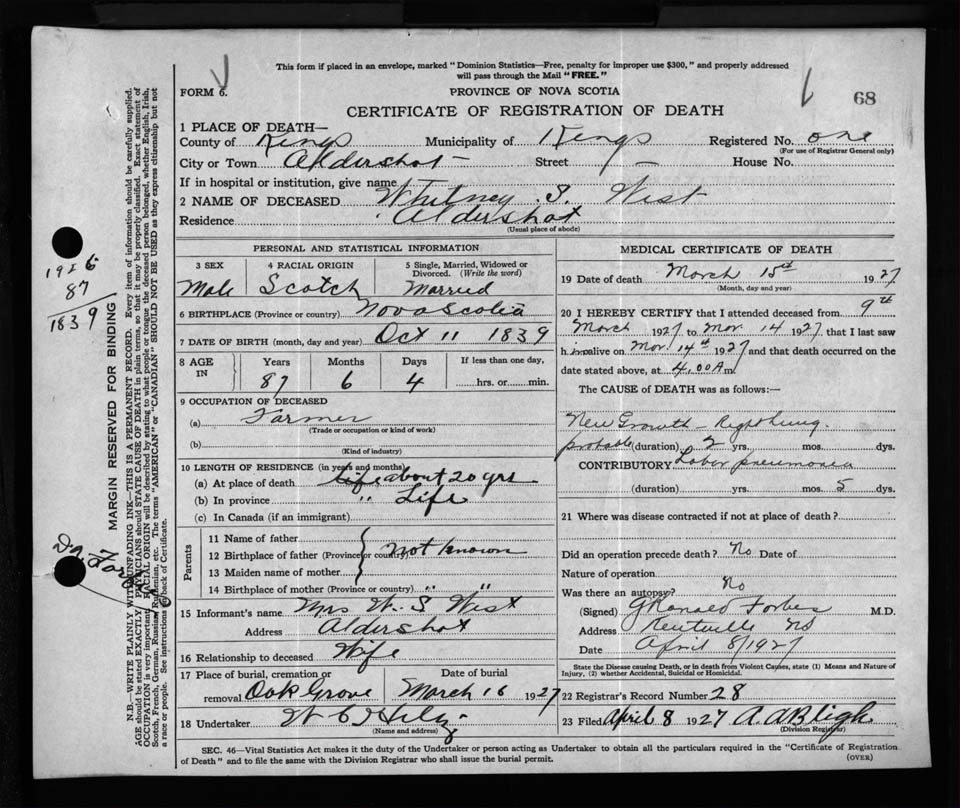 This form if placed in an envelope, marked "Dominion Statistics—Free, penalty for improper use $300," and properly addressed
will pass through the Mail "FREE."
FORM 6.
PROVINCE OF NOVA SCOTIA
68
CERTIFICATE OF REGISTRATION OF DEATH
1 PLACE OF DEATH—
County of Kings Municipality of Kings Registered No. one
(For use of Registrar General only)
City or Town Aldershot — Street — House No.
If in hospital or institution, give name
2 NAME OF DECEASED Whitney S. West
Residence Aldershot
(Usual place of abode)
PERSONAL AND STATISTICAL INFORMATION
3 SEX 4 RACIAL ORIGIN 5 Single, Married, Widowed or
Divorced. (Write the word)
Male Scotch Married
6 BIRTHPLACE (Province or country) Nova Scotia
7 DATE OF BIRTH (month, day and year) Oct 11 1839
8 AGE IN Years Months Days If less than one day,
87 6 4 hrs. or min.
9 OCCUPATION OF DECEASED
(a) Farmer
(Trade or occupation or kind of work)
(b)
(Kind of industry)
10 LENGTH OF RESIDENCE (in years and months)
(a) At place of death Life about 20 yrs
(b) In province " Life
(c) In Canada (if an immigrant)
Parents
11 Name of father
12 Birthplace of father (Province or country) not known
13 Maiden name of mother
14 Birthplace of mother (Province or country) " "
15 Informant's name Mrs W. S West
Address Aldershot
16 Relationship to deceased Wife
17 Place of burial, cremation or Date of burial
removal Oak Grove March 16 1927
18 Undertaker
(Name and address)
MEDICAL CERTIFICATE OF DEATH
19 Date of death March 15th 1927
(Month, day and year)
20 I HEREBY CERTIFY that I attended deceased from 9th
March 1927 to Mar. 14 1927 that I last saw
him alive on Mar. 14th 1927 and that death occurred on the
date stated above, at 4.00 A m.
The CAUSE OF DEATH was as follows:—
New Growth – Right Lung.
probable (duration) 2 yrs. mos. dys.
CONTRIBUTORY Lobar pneumonia
(duration) yrs. mos. 5 dys.
21 Where was disease contracted if not at place of death?
Did an operation precede death? No Date of
Nature of operation
Was there an autopsy? No
(Signed) G Ronald Forbes M.D.
Address Kentville NS
Date April 8/1927
State the Disease causing Death, or in death from Violent Causes, state (1) Means and Nature of
Injury, (2) whether Accidental, Suicidal or Homicidal.
22 Registrar's Record Number 28
23 Filed April 8 1927 A. A Bligh
(Division Registrar)
SEC. 46—Vital Statistics Act makes it the duty of the Undertaker or person acting as Undertaker to obtain all the particulars required in the "Certificate of Registration
of Death" and to file the same with the Division Registrar who shall issue the burial permit.
(OVER)
MARGIN RESERVED FOR BINDING
N.B.—WRITE PLAINLY WITH UNFADING INK—THIS IS A PERMANENT RECORD. Every item of information should be carefully supplied.
AGE should be stated EXACTLY. PHYSICIANS should STATE CAUSE OF DEATH in plain terms, so that it may be properly classified. Exact statement of
OCCUPATION is very important. RACIAL ORIGIN will be described by stating to what people or tongue the deceased person belonged, whether English, Irish,
Scotch, French, German, Russian, Ruthenian, etc. The terms "AMERICAN" or "CANADIAN" SHOULD NOT BE USED as they express citizenship but not
a race or people. See instructions on back of Certificate.
1926
87
1839